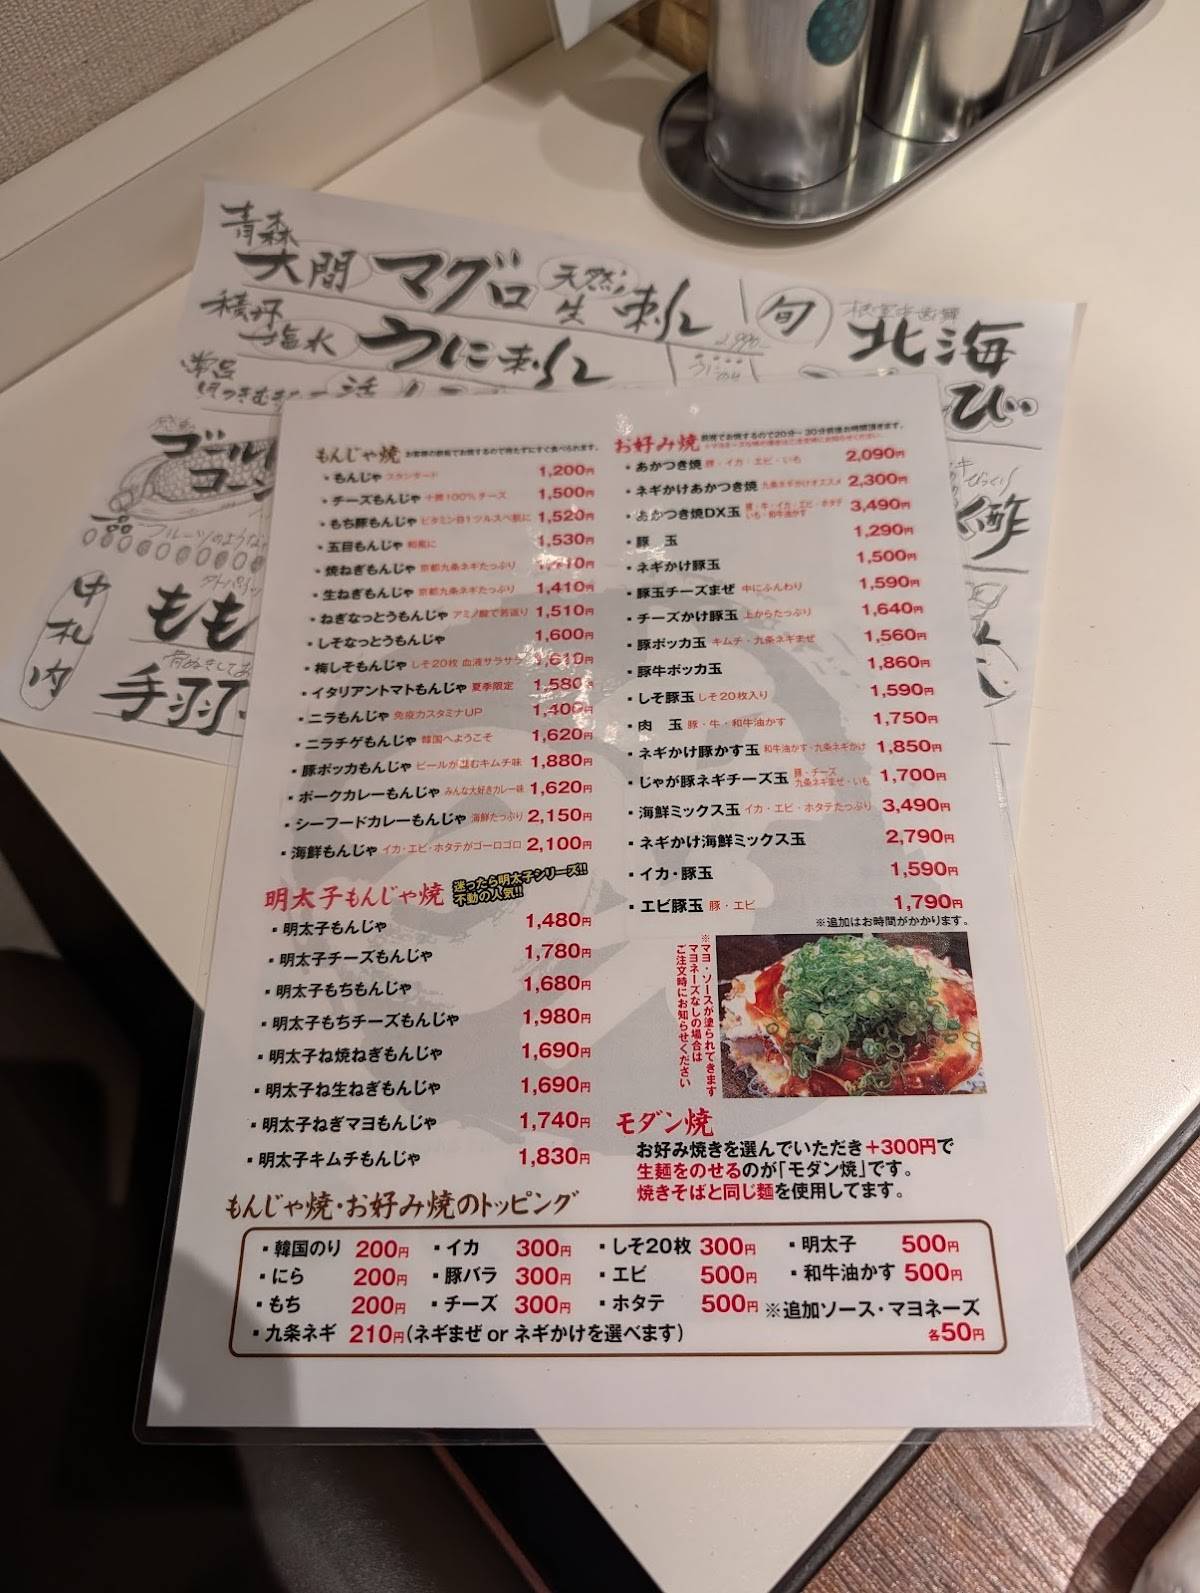 青森
大間 マグロ 天然 生 刺し
旬
北海
積丹
塩水 うに刺し
活
ゴール
コー
フルーツのような
中札内
もも
手羽
酢
もんじゃ焼 お客様の鉄板でお焼するので待たずにすぐ食べられます。
・もんじゃ スタンダード 1,200円
・チーズもんじゃ 十勝100%チーズ 1,500円
・もち豚もんじゃ ビタミンB1ツルスベ肌に 1,520円
・五目もんじゃ 和風に 1,530円
・焼ねぎもんじゃ 京都九条ネギたっぷり
・生ねぎもんじゃ 京都九条ネギたっぷり 1,410円
・ねぎなっとうもんじゃ アミノ酸で若返り 1,510円
・しそなっとうもんじゃ 1,600円
・梅しそもんじゃ しそ20枚 血液サラサラ 1,610円
・イタリアントマトもんじゃ 夏季限定 1,580円
・ニラもんじゃ 免疫力スタミナUP 1,400円
・ニラチゲもんじゃ 韓国へようこそ 1,620円
・豚ポッカもんじゃ ビールが進むキムチ味 1,880円
・ポークカレーもんじゃ みんな大好きカレー味 1,620円
・シーフードカレーもんじゃ 海鮮たっぷり 2,150円
・海鮮もんじゃ イカ・エビ・ホタテがゴーロゴロ 2,100円
明太子もんじゃ焼 迷ったら明太子シリーズ!!
不動の人気!!
・明太子もんじゃ 1,480円
・明太子チーズもんじゃ 1,780円
・明太子もちもんじゃ 1,680円
・明太子もちチーズもんじゃ 1,980円
・明太子ね焼ねぎもんじゃ 1,690円
・明太子ね生ねぎもんじゃ 1,690円
・明太子ねぎマヨもんじゃ 1,740円
・明太子キムチもんじゃ 1,830円
お好み焼 鉄板でお焼するので20分〜30分前後お時間頂きます。
・あかつき焼 豚・イカ・エビ・いも 2,090円
・ネギかけあかつき焼 九条ネギかけオススメ 2,300円
・あかつき焼DX玉 豚・牛・イカ・エビ・ホタテ
いも・和牛油かす 3,490円
・豚 玉 1,290円
・ネギかけ豚玉 1,500円
・豚玉チーズまぜ 中にふんわり 1,590円
・チーズかけ豚玉 上からたっぷり 1,640円
・豚ポッカ玉 キムチ・九条ネギまぜ 1,560円
・豚牛ポッカ玉 1,860円
・しそ豚玉 しそ20枚入り 1,590円
・肉 玉 豚・牛・和牛油かす 1,750円
・ネギかけ豚かす玉 和牛油かす・九条ネギかけ 1,850円
・じゃが豚ネギチーズ玉 豚・チーズ
九条ネギまぜ・いも 1,700円
・海鮮ミックス玉 イカ・エビ・ホタテたっぷり 3,490円
・ネギかけ海鮮ミックス玉 2,790円
・イカ・豚玉 1,590円
・エビ豚玉 豚・エビ 1,790円
※追加はお時間がかかります。
※マヨ・ソースが塗られてきます
マヨネーズなしの場合は
ご注文時にお知らせください
モダン焼
お好み焼きを選んでいただき+300円で
生麺をのせるのが「モダン焼」です。
焼きそばと同じ麺を使用してます。
もんじゃ焼・お好み焼のトッピング
・韓国のり 200円 ・イカ 300円 ・しそ20枚 300円 ・明太子 500円
・にら 200円 ・豚バラ 300円 ・エビ 500円 ・和牛油かす 500円
・もち 200円 ・チーズ 300円 ・ホタテ 500円 ※追加ソース・マヨネーズ
・九条ネギ 210円(ネギまぜ or ネギかけを選べます) 各50円